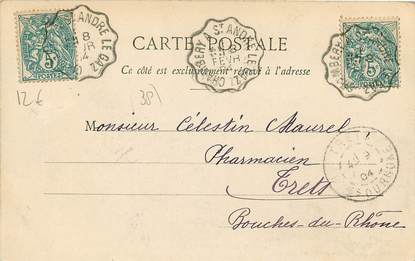 CARTE POSTALE
Ce côté est exclusivement réservé à l'adresse
CHAMBERY A St ANDRE LE GAZ
FEVR
5
POSTES
12€
(38)
Monsieur Célestin Maurel
Pharmacien
Trets
Bouches-du-Rhône
04